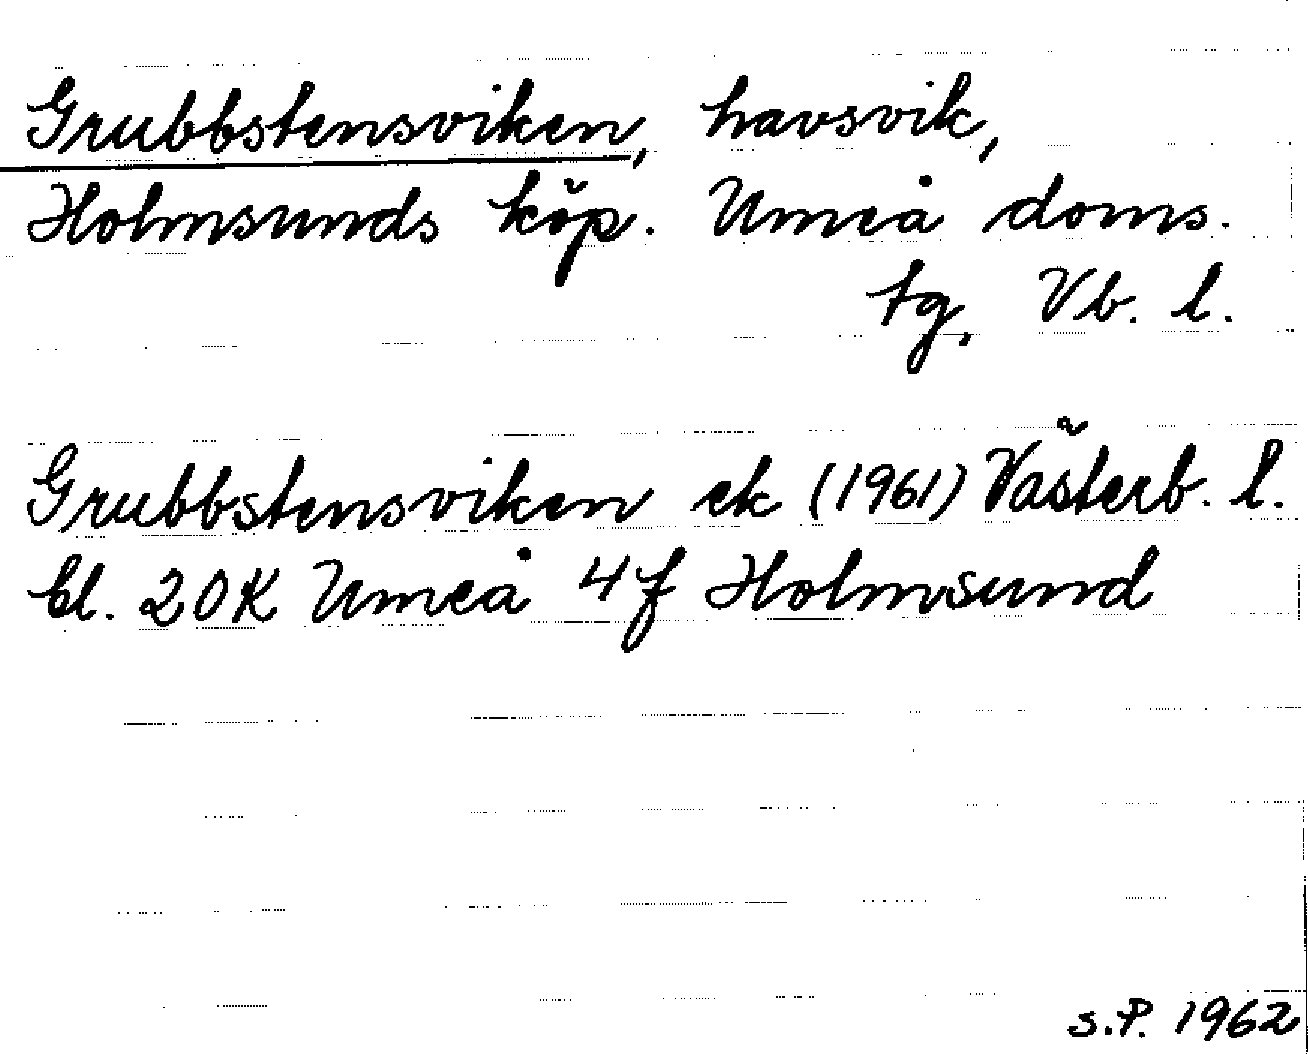 Grubbstensviken, havsvik,
Holmsunds köp. Umeå doms.
tg, Vb. l.
Grubbstensviken ek (1961) Västerb. l.
bl. 20K Umeå 4f Holmsund
s.P. 1962